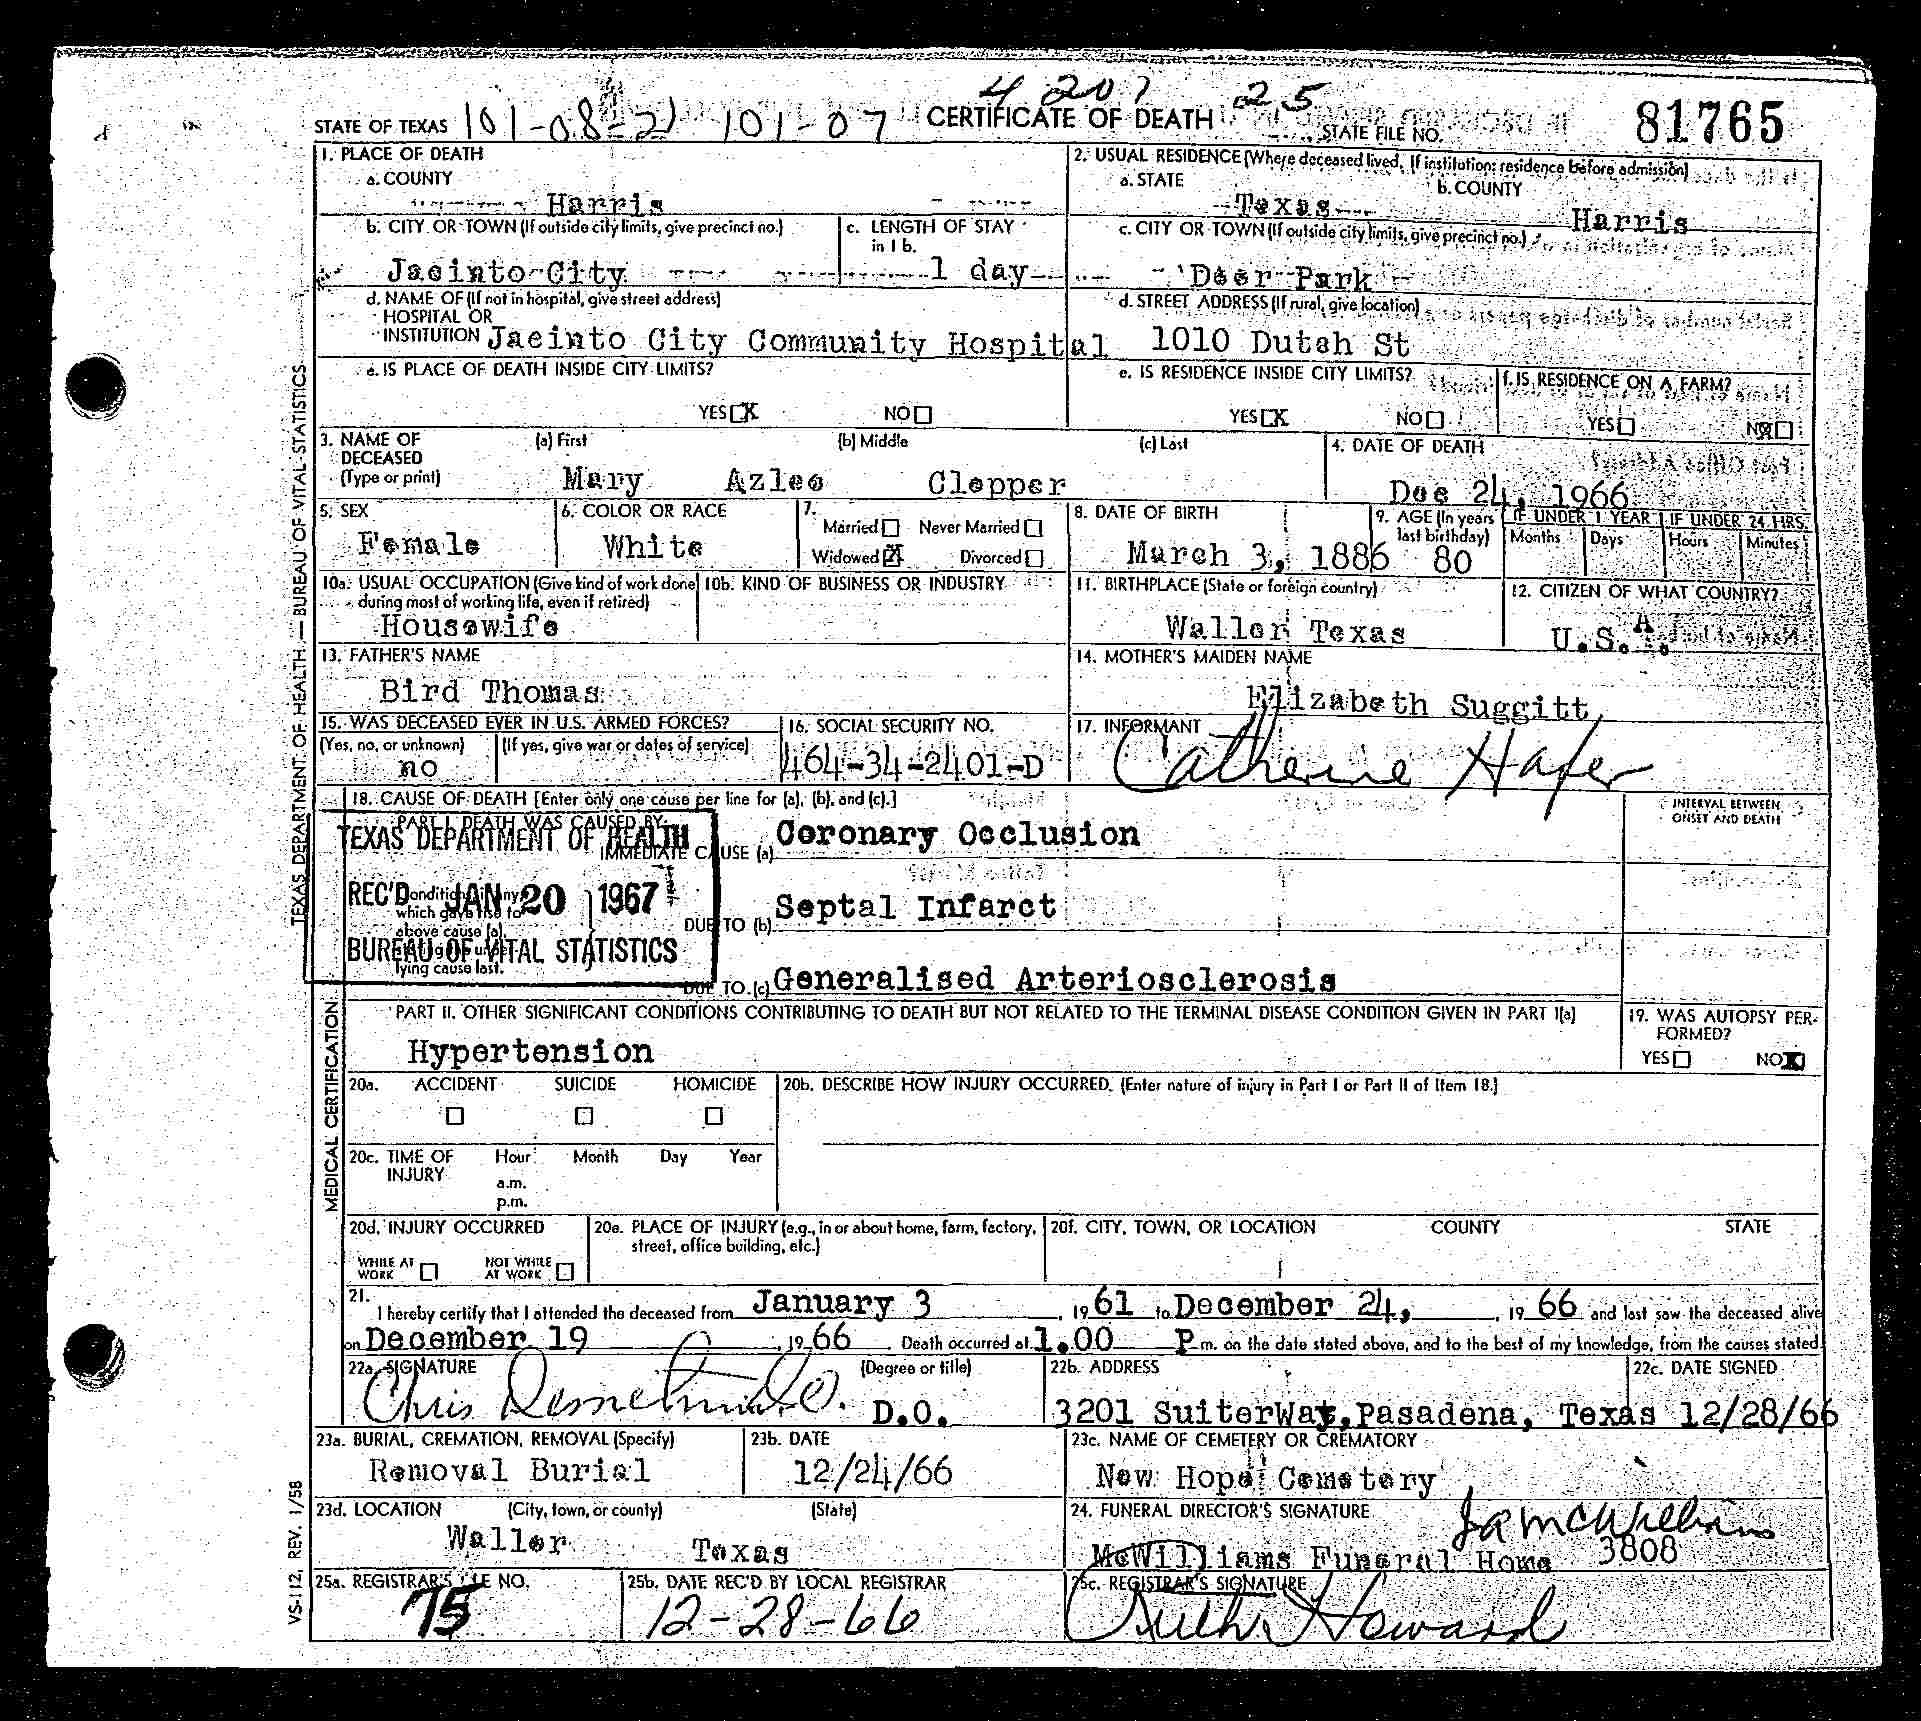 4 207 25
STATE OF TEXAS 101-08-21 101-07 CERTIFICATE OF DEATH STATE FILE NO. 81765
1. PLACE OF DEATH
a. COUNTY
Harris
2. USUAL RESIDENCE (Where deceased lived. If institution: residence before admission)
a. STATE b. COUNTY
Texas Harris
b. CITY OR TOWN (If outside city limits, give precinct no.) c. LENGTH OF STAY in 1 b.
Jacinto City 1 day
c. CITY OR TOWN (If outside city limits, give precinct no.)
Deer Park
d. NAME OF (If not in hospital, give street address)
HOSPITAL OR
INSTITUTION Jacinto City Community Hospital
d. STREET ADDRESS (If rural, give location)
1010 Dutch St
e. IS PLACE OF DEATH INSIDE CITY LIMITS?
YES X NO
e. IS RESIDENCE INSIDE CITY LIMITS?
YES X NO
f. IS RESIDENCE ON A FARM?
YES NO X
3. NAME OF DECEASED (Type or print) (a) First (b) Middle (c) Last
Mary Azlee Clepper
4. DATE OF DEATH
Dec 24, 1966
5. SEX
Female
6. COLOR OR RACE
White
7. Married Never Married
Widowed X Divorced
8. DATE OF BIRTH
March 3, 1886
9. AGE (In years last birthday)
80
IF UNDER 1 YEAR IF UNDER 24 HRS.
Months Days Hours Minutes
10a. USUAL OCCUPATION (Give kind of work done during most of working life, even if retired)
Housewife
10b. KIND OF BUSINESS OR INDUSTRY
11. BIRTHPLACE (State or foreign country)
Waller Texas
12. CITIZEN OF WHAT COUNTRY?
U.S.A.
13. FATHER'S NAME
Bird Thomas
14. MOTHER'S MAIDEN NAME
Elizabeth Suggitt
15. WAS DECEASED EVER IN U.S. ARMED FORCES?
(Yes, no, or unknown) (If yes, give war or dates of service)
no
16. SOCIAL SECURITY NO.
464-34-2401-D
17. INFORMANT
Catherine Hafer
18. CAUSE OF DEATH [Enter only one cause per line for (a), (b), and (c).]
INTERVAL BETWEEN ONSET AND DEATH
PART I. DEATH WAS CAUSED BY:
IMMEDIATE CAUSE (a) Coronary Occlusion
TEXAS DEPARTMENT OF HEALTH
REC'D JAN 20 1967
BUREAU OF VITAL STATISTICS
which gave rise to
above cause (a),
lying cause last.
DUE TO (b) Septal Infarct
DUE TO (c) Generalised Arteriosclerosis
PART II. OTHER SIGNIFICANT CONDITIONS CONTRIBUTING TO DEATH BUT NOT RELATED TO THE TERMINAL DISEASE CONDITION GIVEN IN PART I(a)
Hypertension
19. WAS AUTOPSY PERFORMED?
YES NO X
20a. ACCIDENT SUICIDE HOMICIDE
20b. DESCRIBE HOW INJURY OCCURRED. (Enter nature of injury in Part I or Part II of Item 18.)
20c. TIME OF INJURY Hour Month Day Year
a.m.
p.m.
20d. INJURY OCCURRED
WHILE AT WORK NOT WHILE AT WORK
20e. PLACE OF INJURY (e.g., in or about home, farm, factory, street, office building, etc.)
20f. CITY, TOWN, OR LOCATION COUNTY STATE
21.
I hereby certify that I attended the deceased from January 3, 19 61 to December 24, 19 66 and last saw the deceased alive
on December 19, 19 66 Death occurred at 1.00 P m. on the date stated above, and to the best of my knowledge, from the causes stated
22a. SIGNATURE (Degree or title)
Chris D.O.
22b. ADDRESS
3201 SuiterWay, Pasadena, Texas
22c. DATE SIGNED
12/28/66
23a. BURIAL, CREMATION, REMOVAL (Specify)
Removal Burial
23b. DATE
12/24/66
23c. NAME OF CEMETERY OR CREMATORY
New Hope Cemetery
23d. LOCATION (City, town, or county) (State)
Waller Texas
24. FUNERAL DIRECTOR'S SIGNATURE
Ja McWilliams
McWilliams Funeral Home 3808
25a. REGISTRAR'S FILE NO.
75
25b. DATE REC'D BY LOCAL REGISTRAR
12-28-66
25c. REGISTRAR'S SIGNATURE
Ruth Howard
TEXAS DEPARTMENT OF HEALTH — BUREAU OF VITAL STATISTICS
MEDICAL CERTIFICATION
VS-112, REV. 1/58